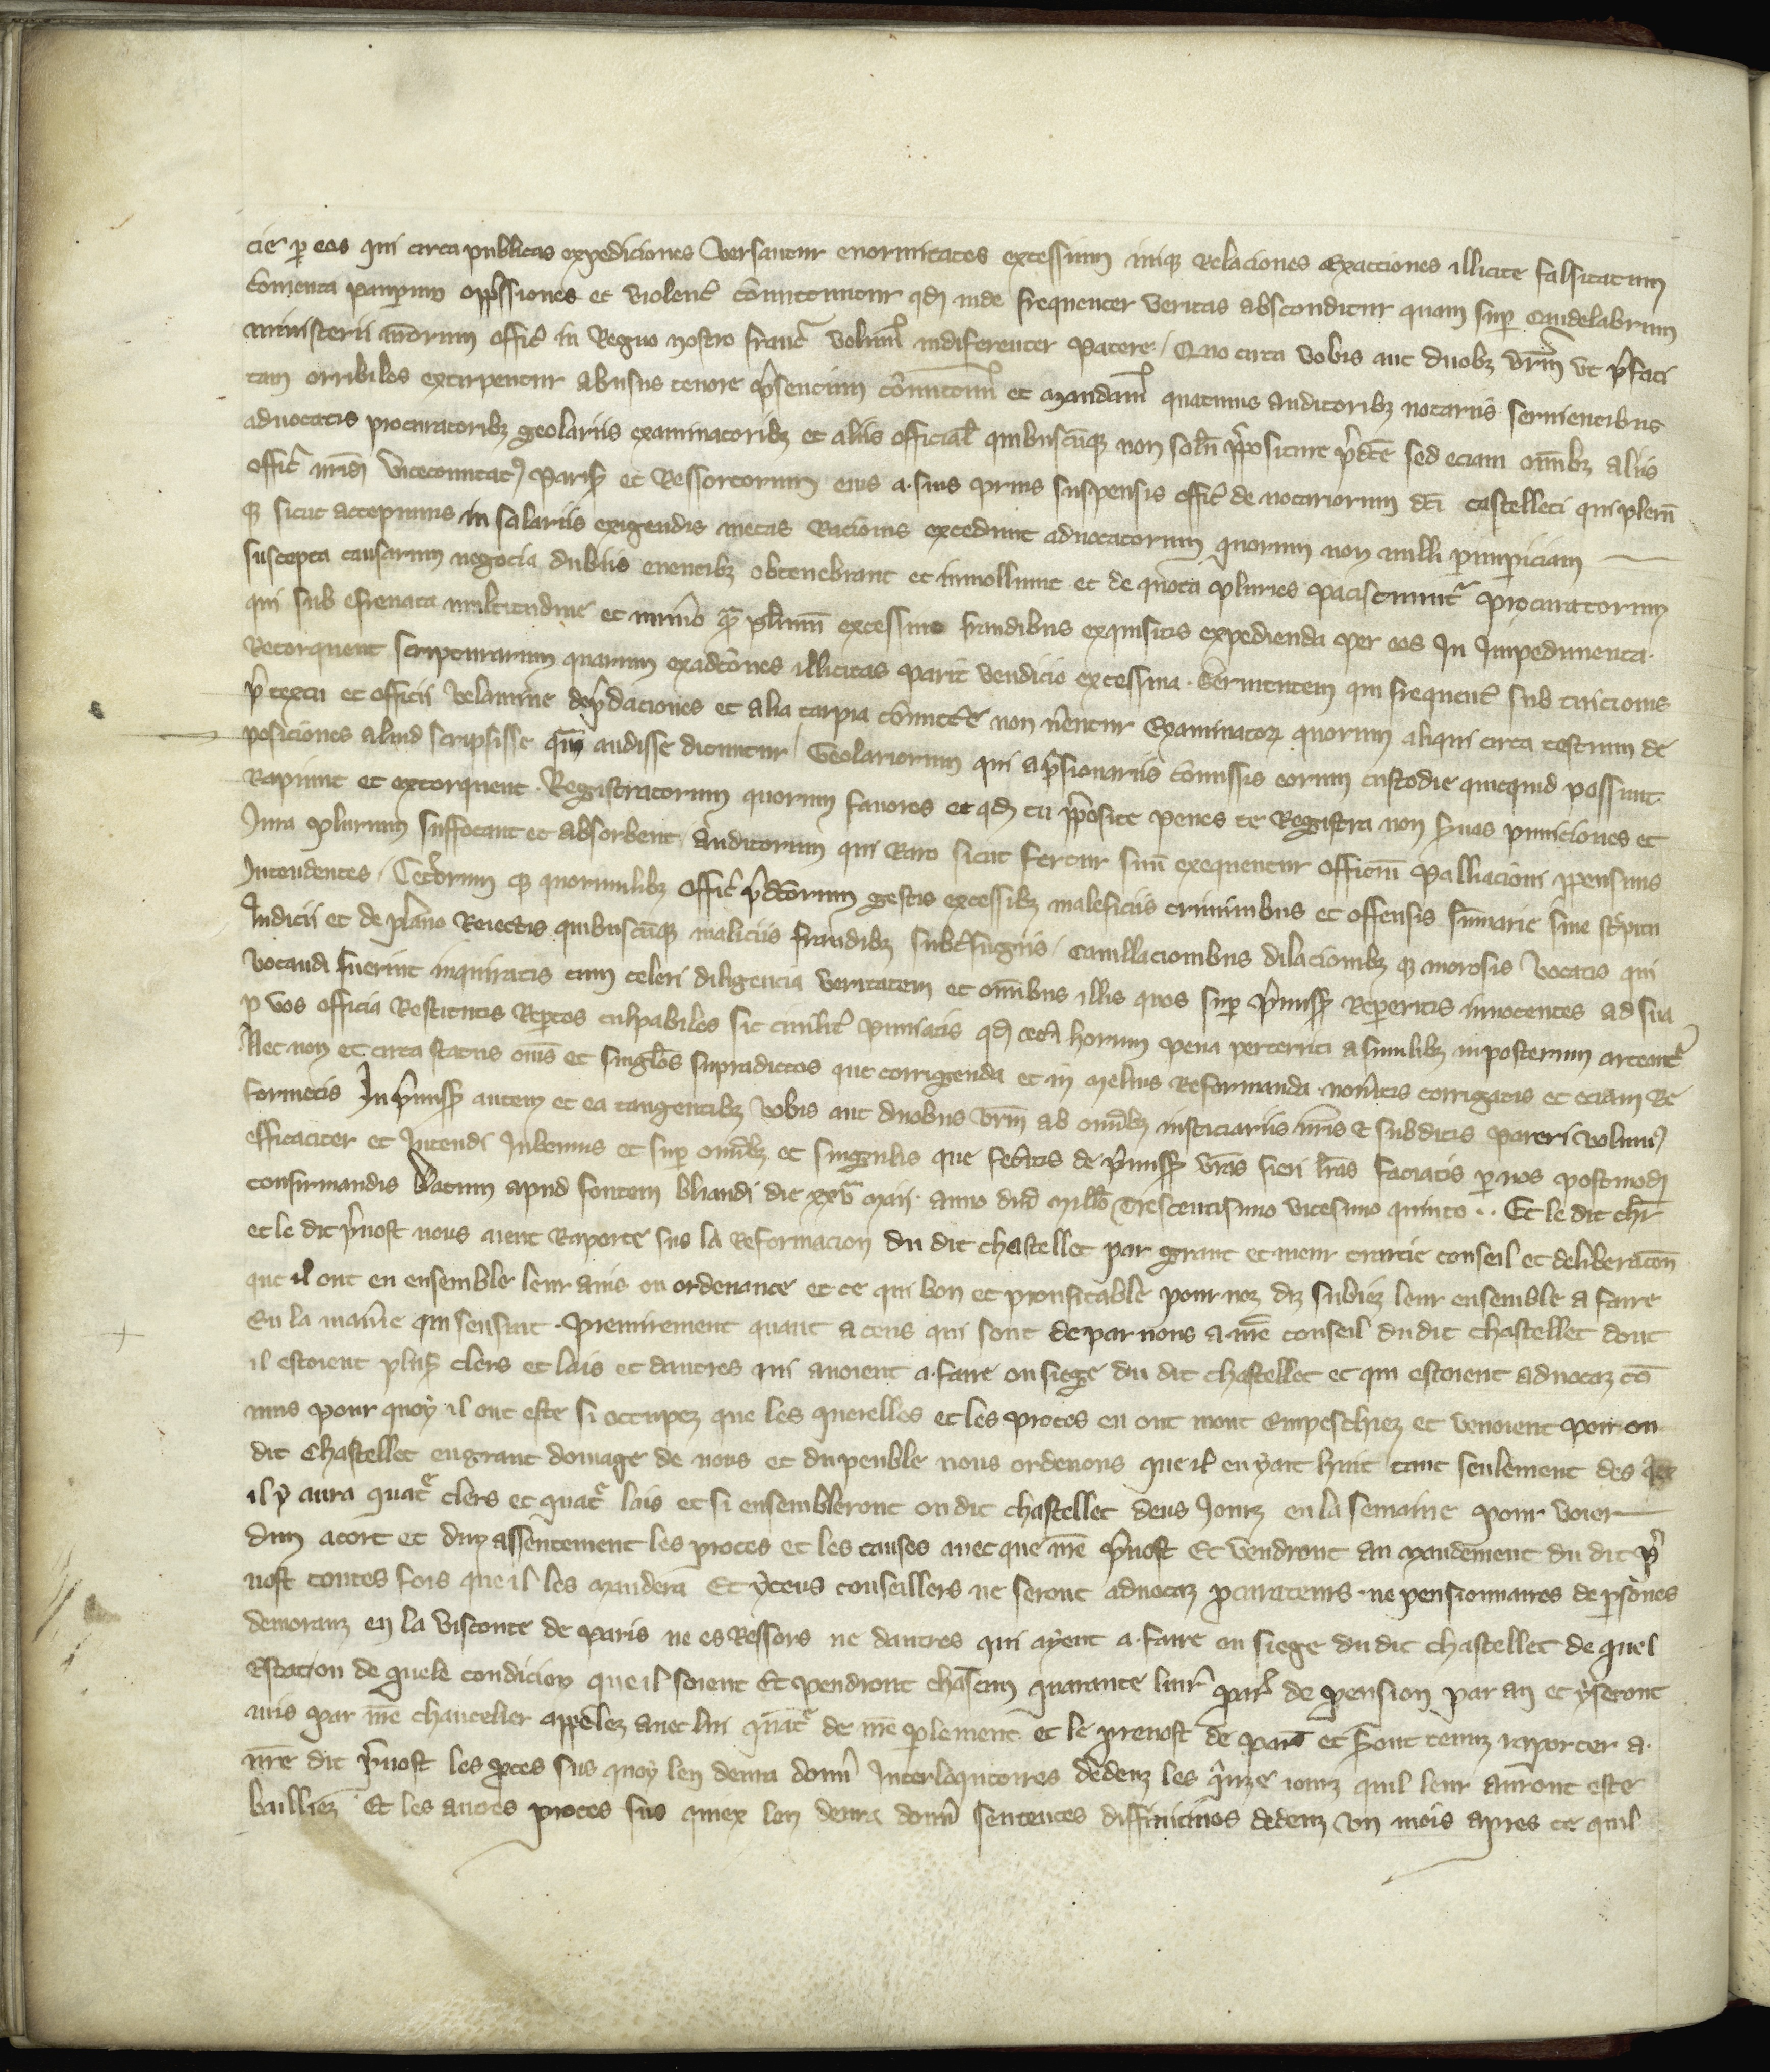 cie p eos qui circa publicas expediciones versantur enormitates excessiuum iniq relaciones exacciones illicite falsitatum
comenta pauperum oppssiones et violenc comittuntur qd inde frequenter veritas absconditur quam sup candelabrum
ministerii nrorum offic in Regno nostro franc volum indiferenter patere / Quo circa vobis aut duobz vrm vt pfati
tam orribiles extirpentur abusus tenore psentium comittim et mandam quatinus auditoribz notariis seruientibus
aduocatis procuratoribz geolariis examinatoribz et aliis official quibuscuqz non solu ppositure pdce sed eciam omibz aliis
offic nris vicecomitat paris et Ressortorum eius a suis prius suspensis offic de notariorum dci castelleti qui plerum
qz sicut accepimus in salariis exigendis metas racionis excedunt aduocatorum quorum non nulli p impericiam
suscepta causarum negocia dubiis euentibz obtenebrant et inuoluunt et de quota pluries paciscuntur procuratorum
qui sub efrenata multitudine et nimio qua plurimu excessiuo fraudibus exquisitis expedienda per eos In Impedimenta
Retorquent scripturarum quarum exadcones illicitas parit vendicio excessiua seruientem qui frequent sub tuicionis
p textu et officii velamine depdaciones et alia turpia comittere non verentur Examinatorz quorum aliqui circa testium de
posiciones aliud scripsisse quam audisse dicuntur / Geolariorum qui a psionariis comissis eorum custodie quicquid possunt
Rapiunt et extorquent Registratorum quorum fauores et qd tu pposite penes te Registra non seruas puniciones et
Iura plurium suffocant et absorbent / auditorum qui Raro sicut fertur suu exequentur officiu palliacioni ppensius
Intendentes / Ceterorum qz quorumlibz offic pdcorum gestis excessibz maleficiis criminibus et offensis sumarie sine strepitu
Iudicii et de plano Reiectis quibuscuqz maliciis fraudibz subterfugiis / cauillacionibus dilacionibz qz morosis vocatis qui
vocandi fuerint inquiratis cum celeri diligencia veritatem et omibus illis quos sup pmiss repperitis innocentes ad sua
p vos officia Restitutis Reptos culpabiles sic ciuilit puniatis qd ceti horum pena perterriti a similibz inposterum arceant
Nec non et circa status ois et singlos supradictos que corrigenda et in melius Reformanda noueritis corrigatis et eciam Re
formetis In pmiss autem et ea tangentibz vobis aut duobus vrm ab omibz iusticiariis nris et subditis pareri volum
efficaciter et Intendi Iubemus et sup omibz et singulis que feceritis de pmiss vras fieri lras faciatis p nos postmod
confirmandis Datum apud fontem bliaudi die xxv maii anno dni millo Trescentisimo vicesimo quinto .. Et le dit chr
et le dit puost nous aient Raporte sus la Reformacion du dit chastellet par grant et meur traitie conseil et deliberacon
que il ont eu ensemble leur auis ou ordenance et ce qui bon et proufitable pour noz diz subiez leur ensemble a faire
En la maniere qui sensuit premirement quant a ceus qui sont de par nous a nre conseil du dit chastellet dont
il estoient pluss clers et lais et dautres qui auoient a faire ou siege du dit chastellet et qui estoient aduocaz co
muns pour quoy il ont este si occupez que les querelles et les proces en ont mont Empeschiez et venoient pou ou
dit chastellet en grant domage de nous et du peuble nous ordenons que il en yait huit tant seulement des qex
il y aura quatre clers et quatre lais et si ensembleront ou dit chastellet deus Iourz en la semaine pour voier
dun acort et dun assentement les proces et les causes auec que nre puost Et vendront au mandement du dit p
uost toutes fois que il les mandera Et yceus conseillers ne seront aduocaz pcurateurs ne pensionnaires de psones
demoranz en la visconte de paris ne es Ressors ne dautres qui ayent a faire ou siege du dit chastellet de quel
Estat ou de quele condicion que il soient Et pendront chascun quarante liur par de pension par an et y seront
mis par nre chancelier appelez auec lui quatre de nre plement et le preuost de paris et seront tenuz raporter a
nre dit puost les pces sus quoy len deura donn Interloqutoires dedenz les quize iourz quil leur auront este
bailliez Et les autres proces sus quiex len deura donn sentences diffinitiues dedenz vn mois apres ce quil